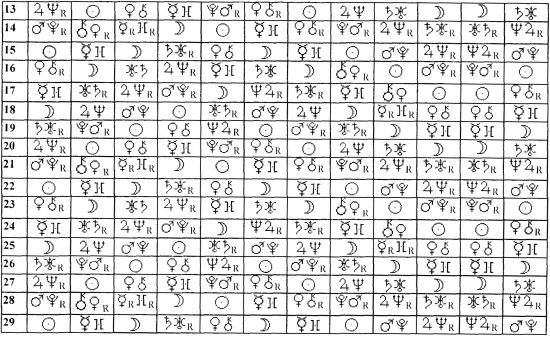 13 ♃♆R ☉ ♀⚷ ☿♓ ⯓♂R ♀⚷R ☉ ♃♆ ♄⛢ ☽ ☽ ♄⛢
14 ♂⯓R ⚷♀R ☿R♓R ☽ ☉ ☿♓ ♀⚷R ⯓♂R ♃♆R ♄⛢R ⛢♄R ♆♃R
15 ☉ ☿♓ ☽ ♄⛢R ♀⚷ ☽ ☿♓ ☉ ♂⯓ ♃♆R ♃♆R ♂⯓
16 ♀⚷R ☽ ⛢♄ ♃♆R ☿♓ ♄⛢ ☽ ⚷♀R ☉ ♂⯓R ⯓♂R ☉
17 ☿♓ ⛢♄R ♃♆R ♂⯓R ☽ ♃♆R ♄⛢R ☿♓ ⚷♀ ☉ ☉ ♀⚷R
18 ☽ ♃♆ ♂⯓ ☉ ⛢♄R ♂⯓ ♃♆ ☽ ☿R♓R ♀⚷ ♀⚷ ☿♓
19 ♄⛢R ⯓♂R ☉ ♀⚷ ♆♃R ☉ ♂⯓R ⛢♄R ☽ ☿♓ ☿♓ ☽
20 ♃♆R ☉ ♀⚷ ☿♓ ⯓♂R ♀⚷R ☉ ♃♆ ♄⛢ ☽ ☽ ♄⛢
21 ♂⯓R ⚷♀R ☿R♓R ☽ ☉ ☿♓ ♀⚷R ⯓♂R ♃♆R ♄⛢R ⛢♄R ♆♃R
22 ☉ ☿♓ ☽ ♄⛢R ♀⚷ ☽ ☿♓ ☉ ♂⯓ ♃♆R ♃♆R ♂⯓
23 ♀⚷R ☽ ⛢♄ ♃♆R ☿♓ ♄⛢ ☽ ⚷♀R ☉ ♂⯓R ⯓♂R ☉
24 ☿♓ ⛢♄R ♃♆R ♂⯓R ☽ ♃♆R ♄⛢R ☿♓ ⚷♀ ☉ ☉ ♀⚷R
25 ☽ ♃♆ ♂⯓ ☉ ⛢♄R ♂⯓ ♃♆ ☽ ☿R♓R ♀⚷ ♀⚷ ☿♓
26 ♄⛢R ⯓♂R ☉ ♀⚷ ♆♃R ☉ ♂⯓R ⛢♄R ☽ ☿♓ ☿♓ ☽
27 ♃♆R ☉ ♀⚷ ☿♓ ⯓♂R ♀⚷R ☉ ♃♆ ♄⛢ ☽ ☽ ♄⛢
28 ♂⯓R ⚷♀R ☿R♓R ☽ ☉ ☿♓ ♀⚷R ⯓♂R ♃♆R ♄⛢R ⛢♄R ♆♃R
29 ☉ ☿♓ ☽ ♄⛢R ♀⚷ ☽ ☿♓ ☉ ♂⯓ ♃♆R ♃♆R ♂⯓